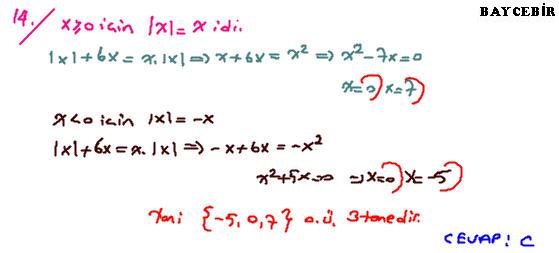 BAYCEBİR
14./ x≥0 için |x|=x idi.
|x|+6x=x.|x| ⇒ x+6x=x² ⇒ x²-7x=0
x=0) x=7)
x<0 için |x|=-x
|x|+6x=x.|x| ⇒ -x+6x=-x²
x²+5x=0 ⇒ x=0) x=-5)
Yani {-5,0,7} o.ü. 3 tanedir.
CEVAP: C